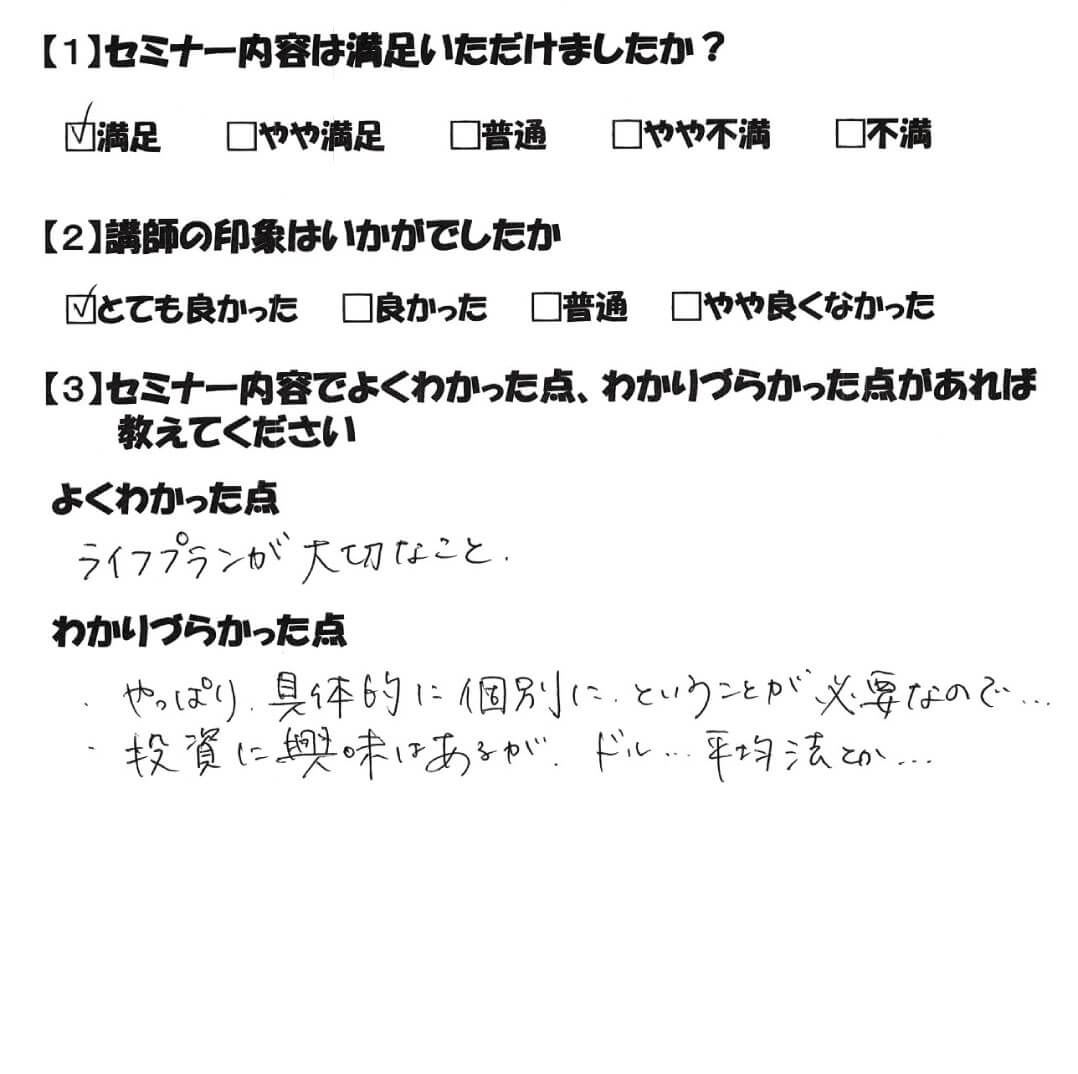 【1】セミナー内容は満足いただけましたか？
☑満足 □やや満足 □普通 □やや不満 □不満
【2】講師の印象はいかがでしたか
☑とても良かった □良かった □普通 □やや良くなかった
【3】セミナー内容でよくわかった点、わかりづらかった点があれば
教えてください
よくわかった点
ライフプランが大切なこと.
わかりづらかった点
・やっぱり、具体的に個別に、ということが必要なので…
・投資に興味はあるが、ドル…平均法とか…